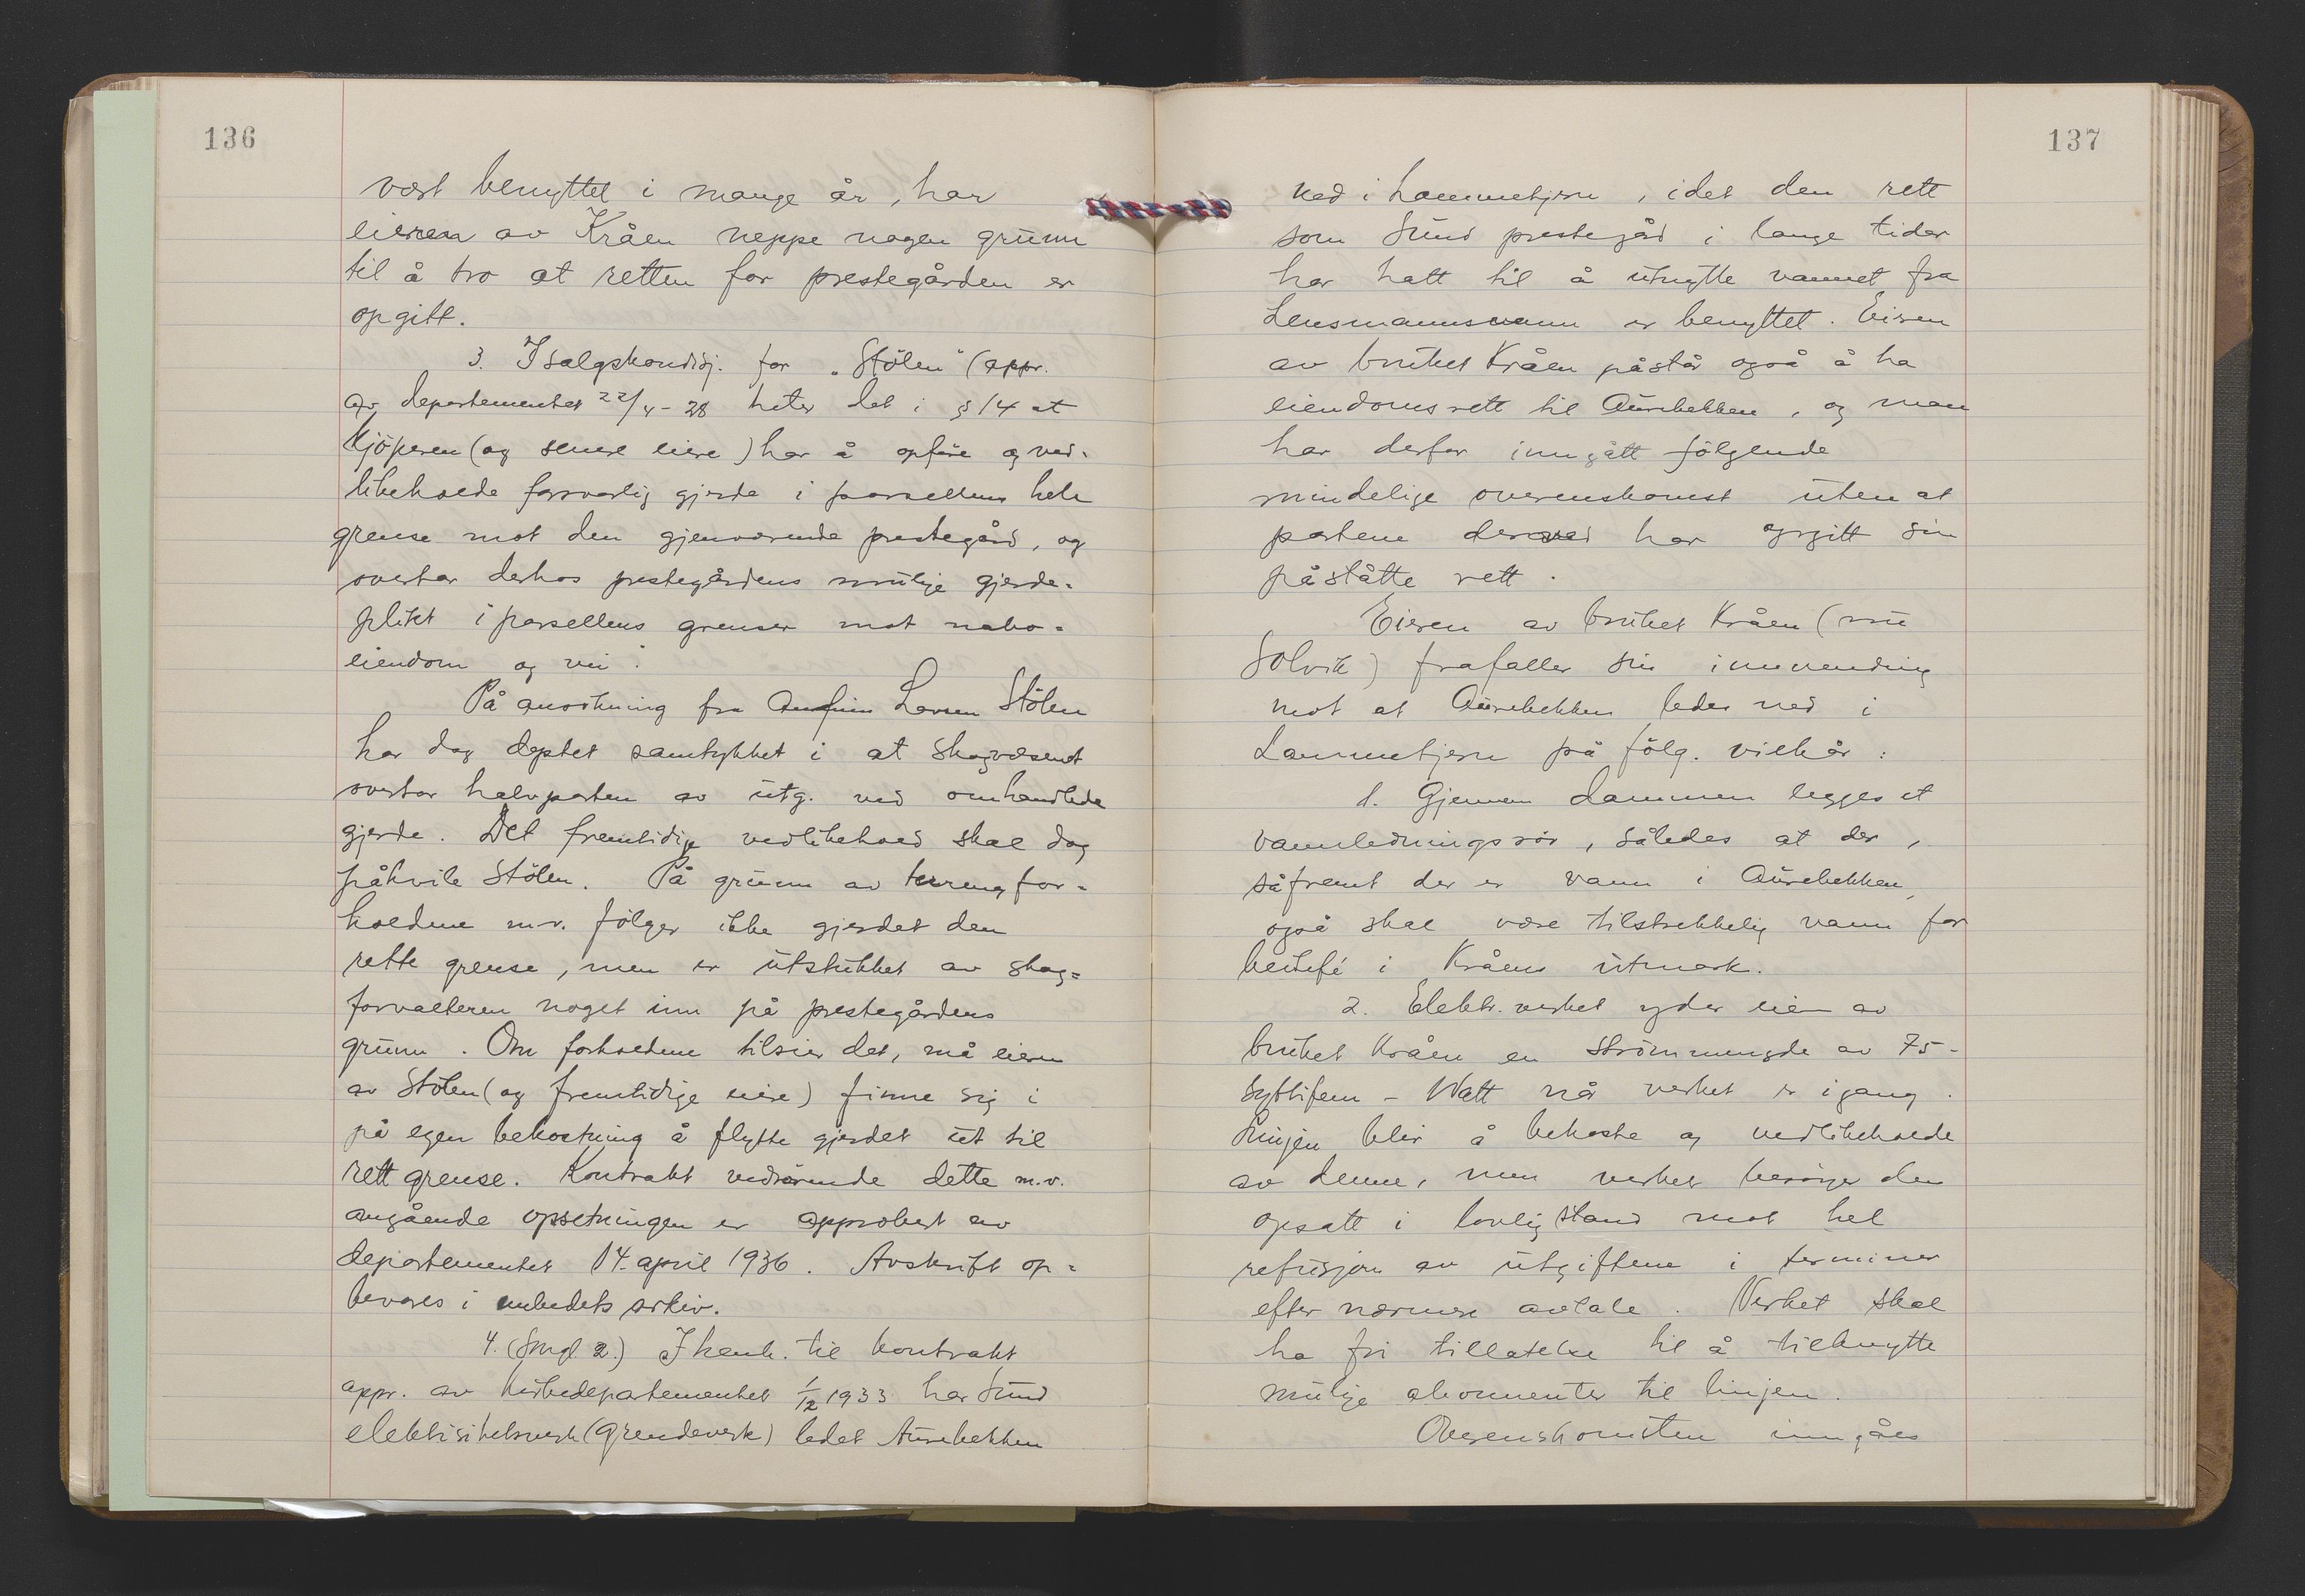 136
vært benyttet i mange år, har
eieren av Kråen neppe nogen grunn
til å tro at retten for prestegården er
opgitt.
3. I salgskondisj. for „Stölen" (appr.
av departementet 22/4-28 heter det i § 14 at
Kjöperen (og senere eiere) har å opføre og ved-
likeholde forsvarlig gjerde i parsellens hele
grense mot den gjenværende prestegård, og
overtar derhos prestegårdens mulige gjerde-
plikt i parsellens grenser mot nabo-
eiendom og vei".
På ansökning fra Larsen Stölen
har dog deptet samtykket i at skogvesenet
overtar halvparten av utg. ved omhandlede
gjerde. Det fremtidige vedlikehold skal dog
påhvile Stölen. På grunn av terrengfor-
holdene m.v. fölger ikke gjerdet den
rette grense, men er utstukket av skog-
forvalteren noget inn på prestegårdens
grunn. Om forholdene tilsier det, må eieren
av Stölen (og fremtidige eiere) finne sig i
på egen bekostning å flytte gjerdet ut til
rett grense. Kontrakt vedrörende dette m.v.
angående opsetningen er approbert av
departementet 14. april 1936. Avskrift op-
bevares i embedets arkiv.
4. (Smgl. 2.) I henh. til kontrakt
appr. av Kirkedepartementet 1/12 1933 har Sund
elektrisitetsverk (grendeverk) ledet Aurebekken
137
ned i Lammetjern, idet den rett
som Sund prestegård i lange tider
har hatt til å utnytte vannet fra
Lensmannsvann er benyttet. Eieren
av bruket Kråen påstår også å ha
eiendomsrett til Aurebekken, og man
har derfor inngått fölgende
mindelige overenskomst uten at
partene derved har opgitt sin
påståtte rett.
Eieren av bruket Kråen (nu
Solvik) frafaller sin innvending
mot at Aurebekken ledes ned i
Lammetjern på fölg. vilkår:
1. Gjennem dammen legges et
vannledningsrör, således at der,
såfremt der er vann i Aurebekken,
også skal være tilstrekkelig vann for
beitefé i Kråens utmark.
2. Elektr. verket yder eieren av
bruket Kråen en strömmengde av 75-
syttifem - Watt når verket er igang.
Linjen blir å bekoste og vedlikeholde
av denne, men verket besörger den
opsatt i lovlig stand mot hel
refusjon av utgiftene i terminer
efter nærmere avtale. Verket skal
ha fri tillatelse til å tilknytte
mulige abonnenter til linjen.
Overenskomsten inngåes